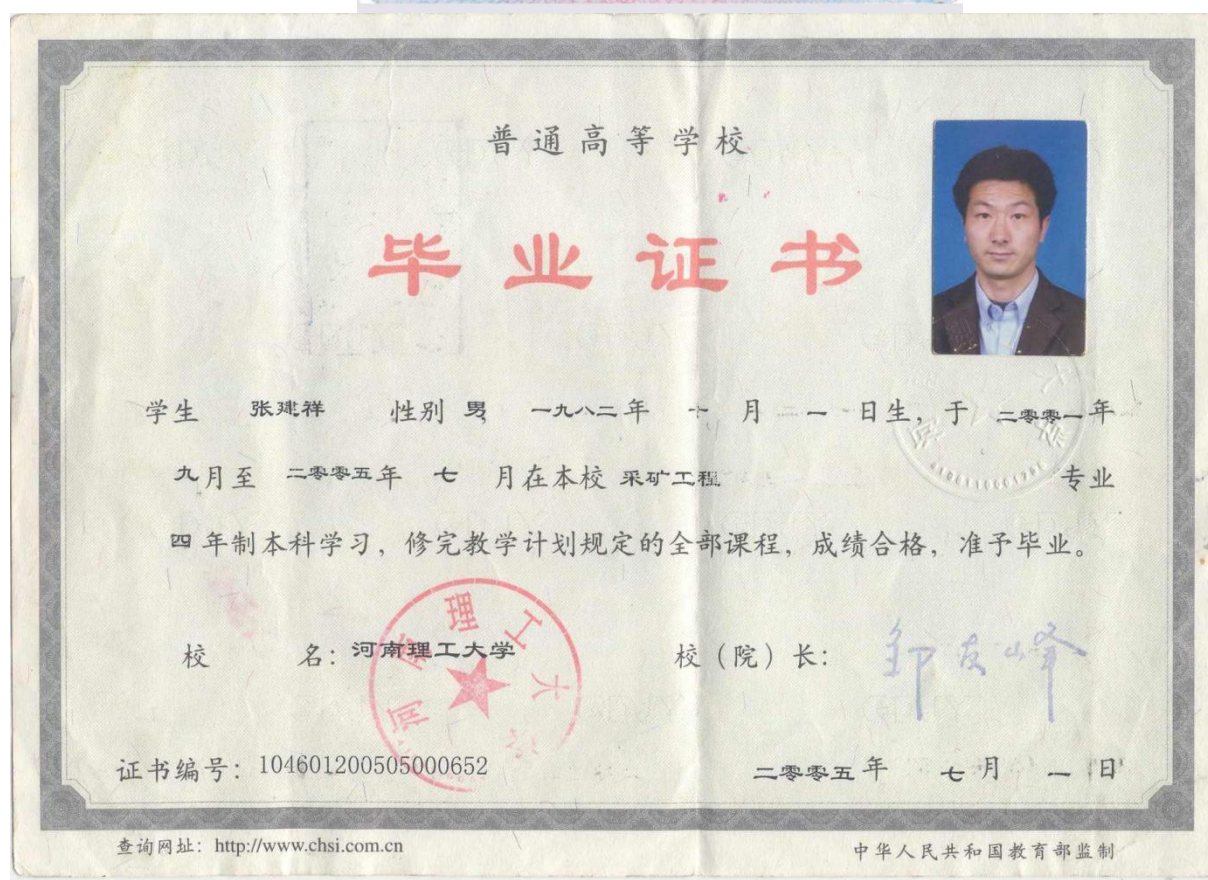 普通高等学校
毕业证书
学生 张建祥 性别 男, 一九八二年 十 月 二一 日生, 于 二零零一年
九月至 二零零五年 七 月在本校 采矿工程 专业
四 年制本科学习, 修完教学计划规定的全部课程, 成绩合格, 准予毕业。
校 名: 河南理工大学 校（院）长: 邹友峰
河南理工大学
证书编号: 104601200505000652 二零零五 年 七 月 一 日
查询网址: http://www.chsi.com.cn 中华人民共和国教育部监制